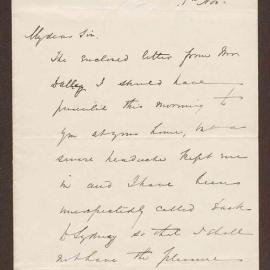 1st Nov.
My dear Sir,
The enclosed letter from Mr
Dalley I should have
presented this morning to
you at your home, but a
severe headache kept me
in and I have been
unexpectedly called back
to Sydney so that I shall
not have the pleasure